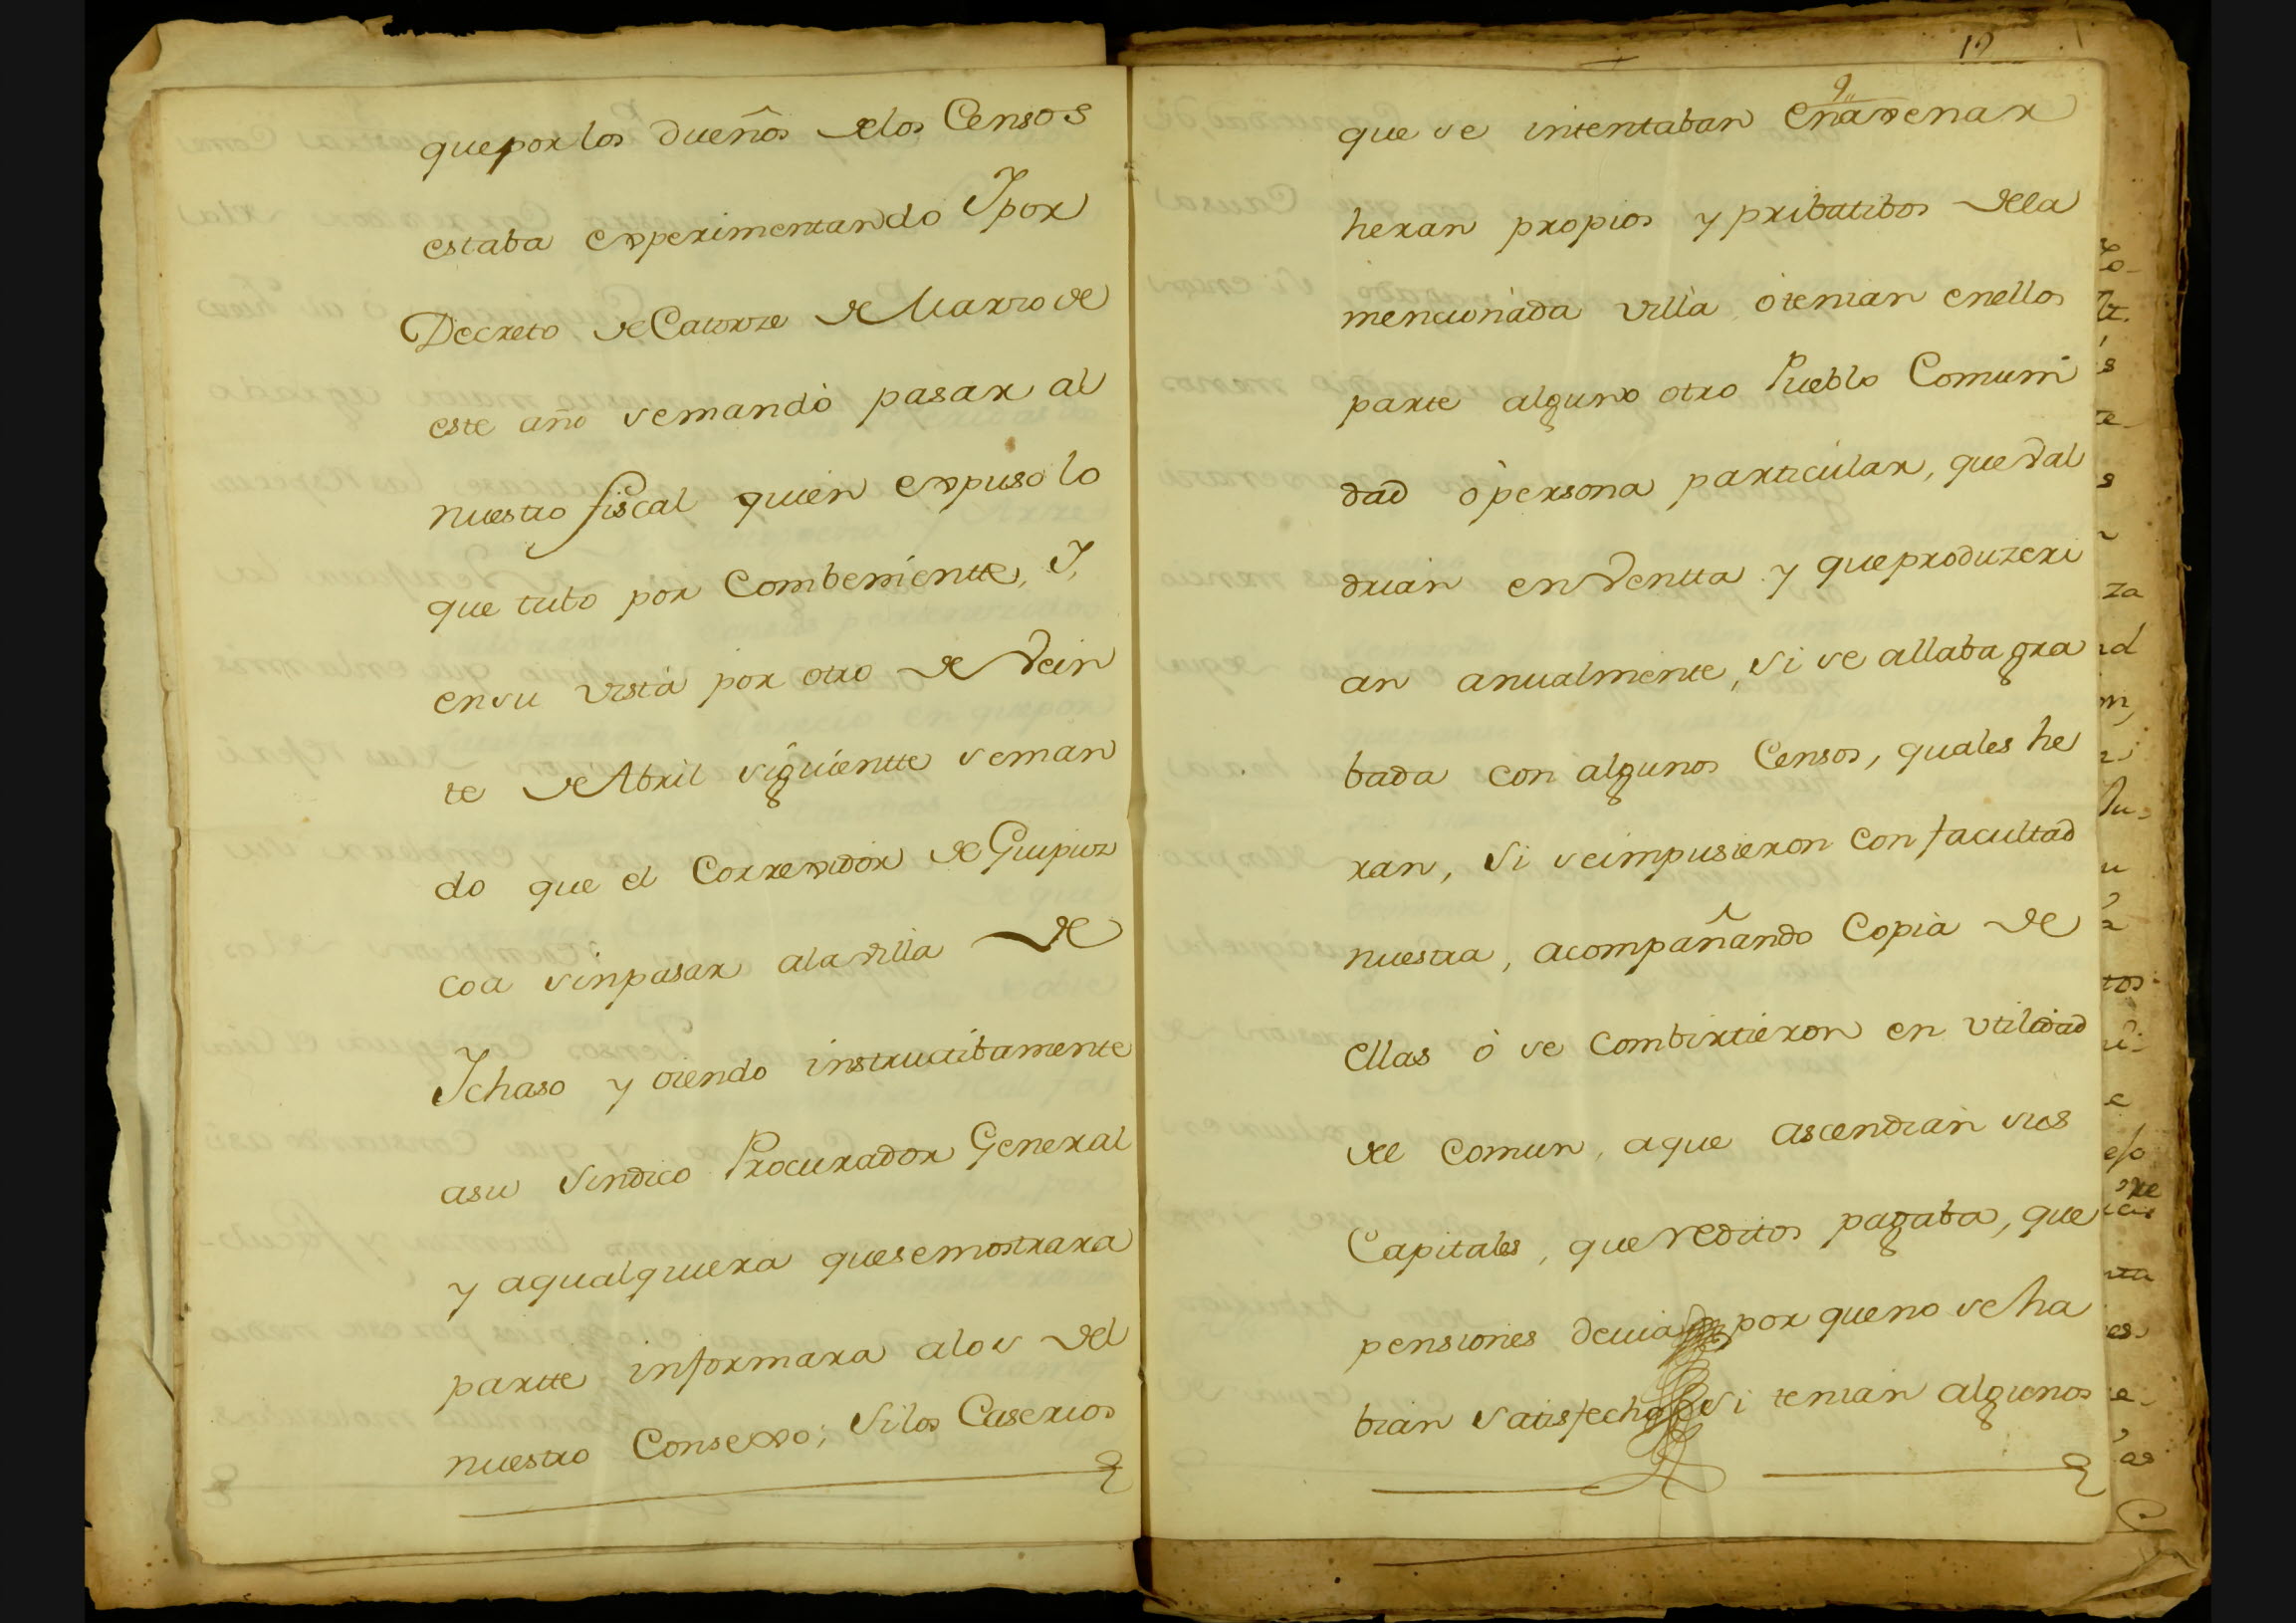 que por los dueños de los Censos
estaba experimentando Y por
Decreto de Catorze de Marzo de
este año se mandò pasar al
nuestro fiscal quien expuso lo
que tubo por Combenientte, Y,
en su vista por otro de Vein
te de Abril siguientte se man
do que el Corregidor de Guipuz
coa sin pasar a la Villa de
Ychaso y oiendo instructibamente
a su Sindico Procurador General
y a qualquiera que se mostrara
partte informara a los del
nuestro Consejo; Si los Caserios
19
9
que se intentaban Enagenar
heran propios y pribatibos de la
mencionada villa ò tenian en ellos
parte alguno otro Pueblo Comuni
dad ò persona particular, que Val
drian en Ventta y que produzeri
an anualmentte, si se allaba gra
bada con algunos Censos, quales he
ran, Si se impusieron con facultad
nuestra, acompañando Copia de
ellas ò se combirtieron en Utilidad
del comun, a que ascendian sus
Capitales, que reditos pagaba, que
pensiones devia por que no se ha
bian satisfecho si tenian algunos